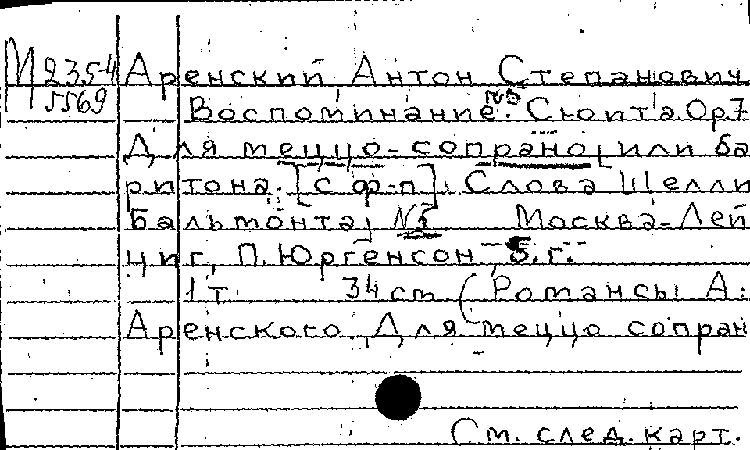 М 235-4 Аренский Антон Степанович.
5569 Воспоминание. №5 Сюита. Op 7
Для меццо-сопрано, или ба
ритона. [с ф-п]. Слова Шелли
Бальмонта, Москва-Лей
циг, П. Юргенсон, Б.г.
1 т 34 cm (Романсы А.
Аренского. Для меццо сопран
См. след. карт.